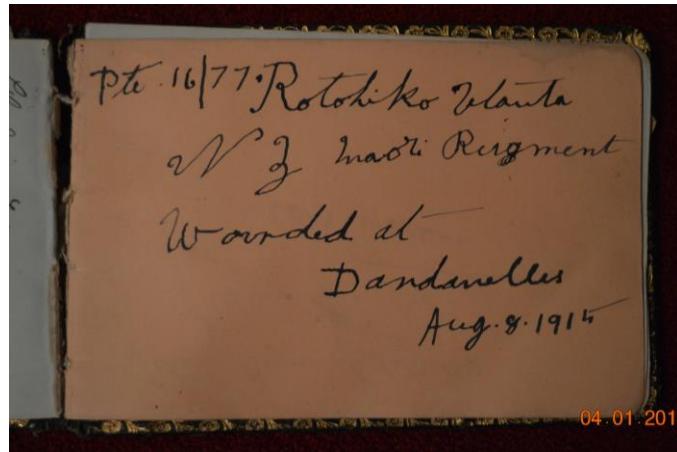 Pte. 16/77. Rotohiko
N Z Maori Reigment
Wounded at
Dandanelles
Aug. 8. 1915
04 01 201